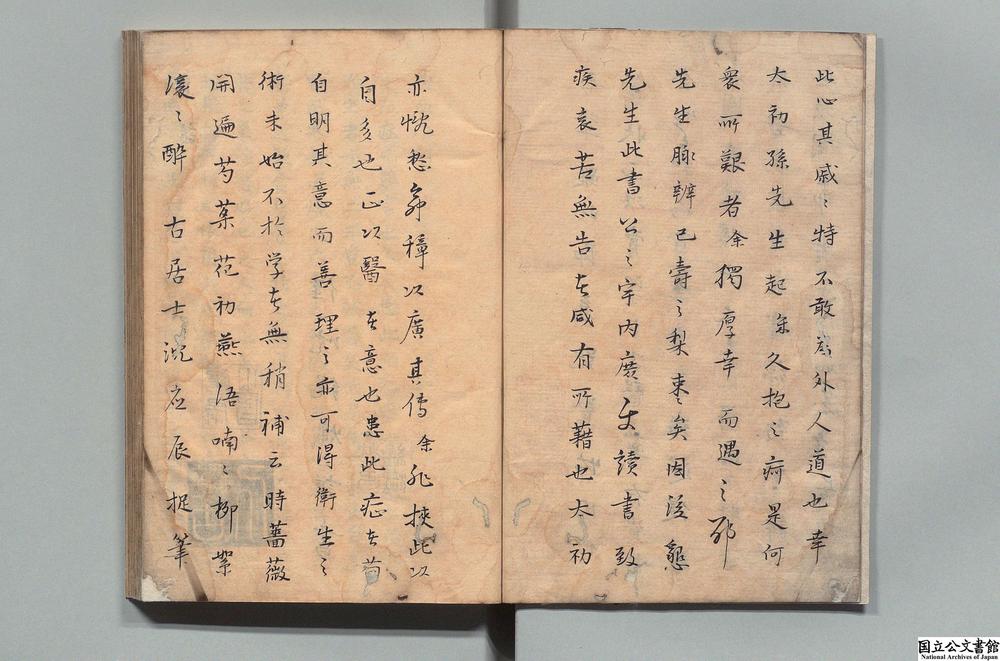 此心其戚〻特不敢為外人道也幸
太初孫先生起余久抱之疴是何
衆所艱者余獨厚幸而遇之邪
先生脉辨已壽之梨棗矣因復懇
先生此書公之宇内庻讀書致
疾哀苦無告者咸有所藉也太初
亦恍愁命穉以廣其傳余非挾此以
自多也正以醫者意也患此症者苟
自明其意而善理之亦可得衛生之
術未始不於学者無稍補云時薔薇
開遍芍薬花初燕语喃〻柳絮
濛〻醉古居士沈应辰捉筆
国立公文書館
National Archives of Japan